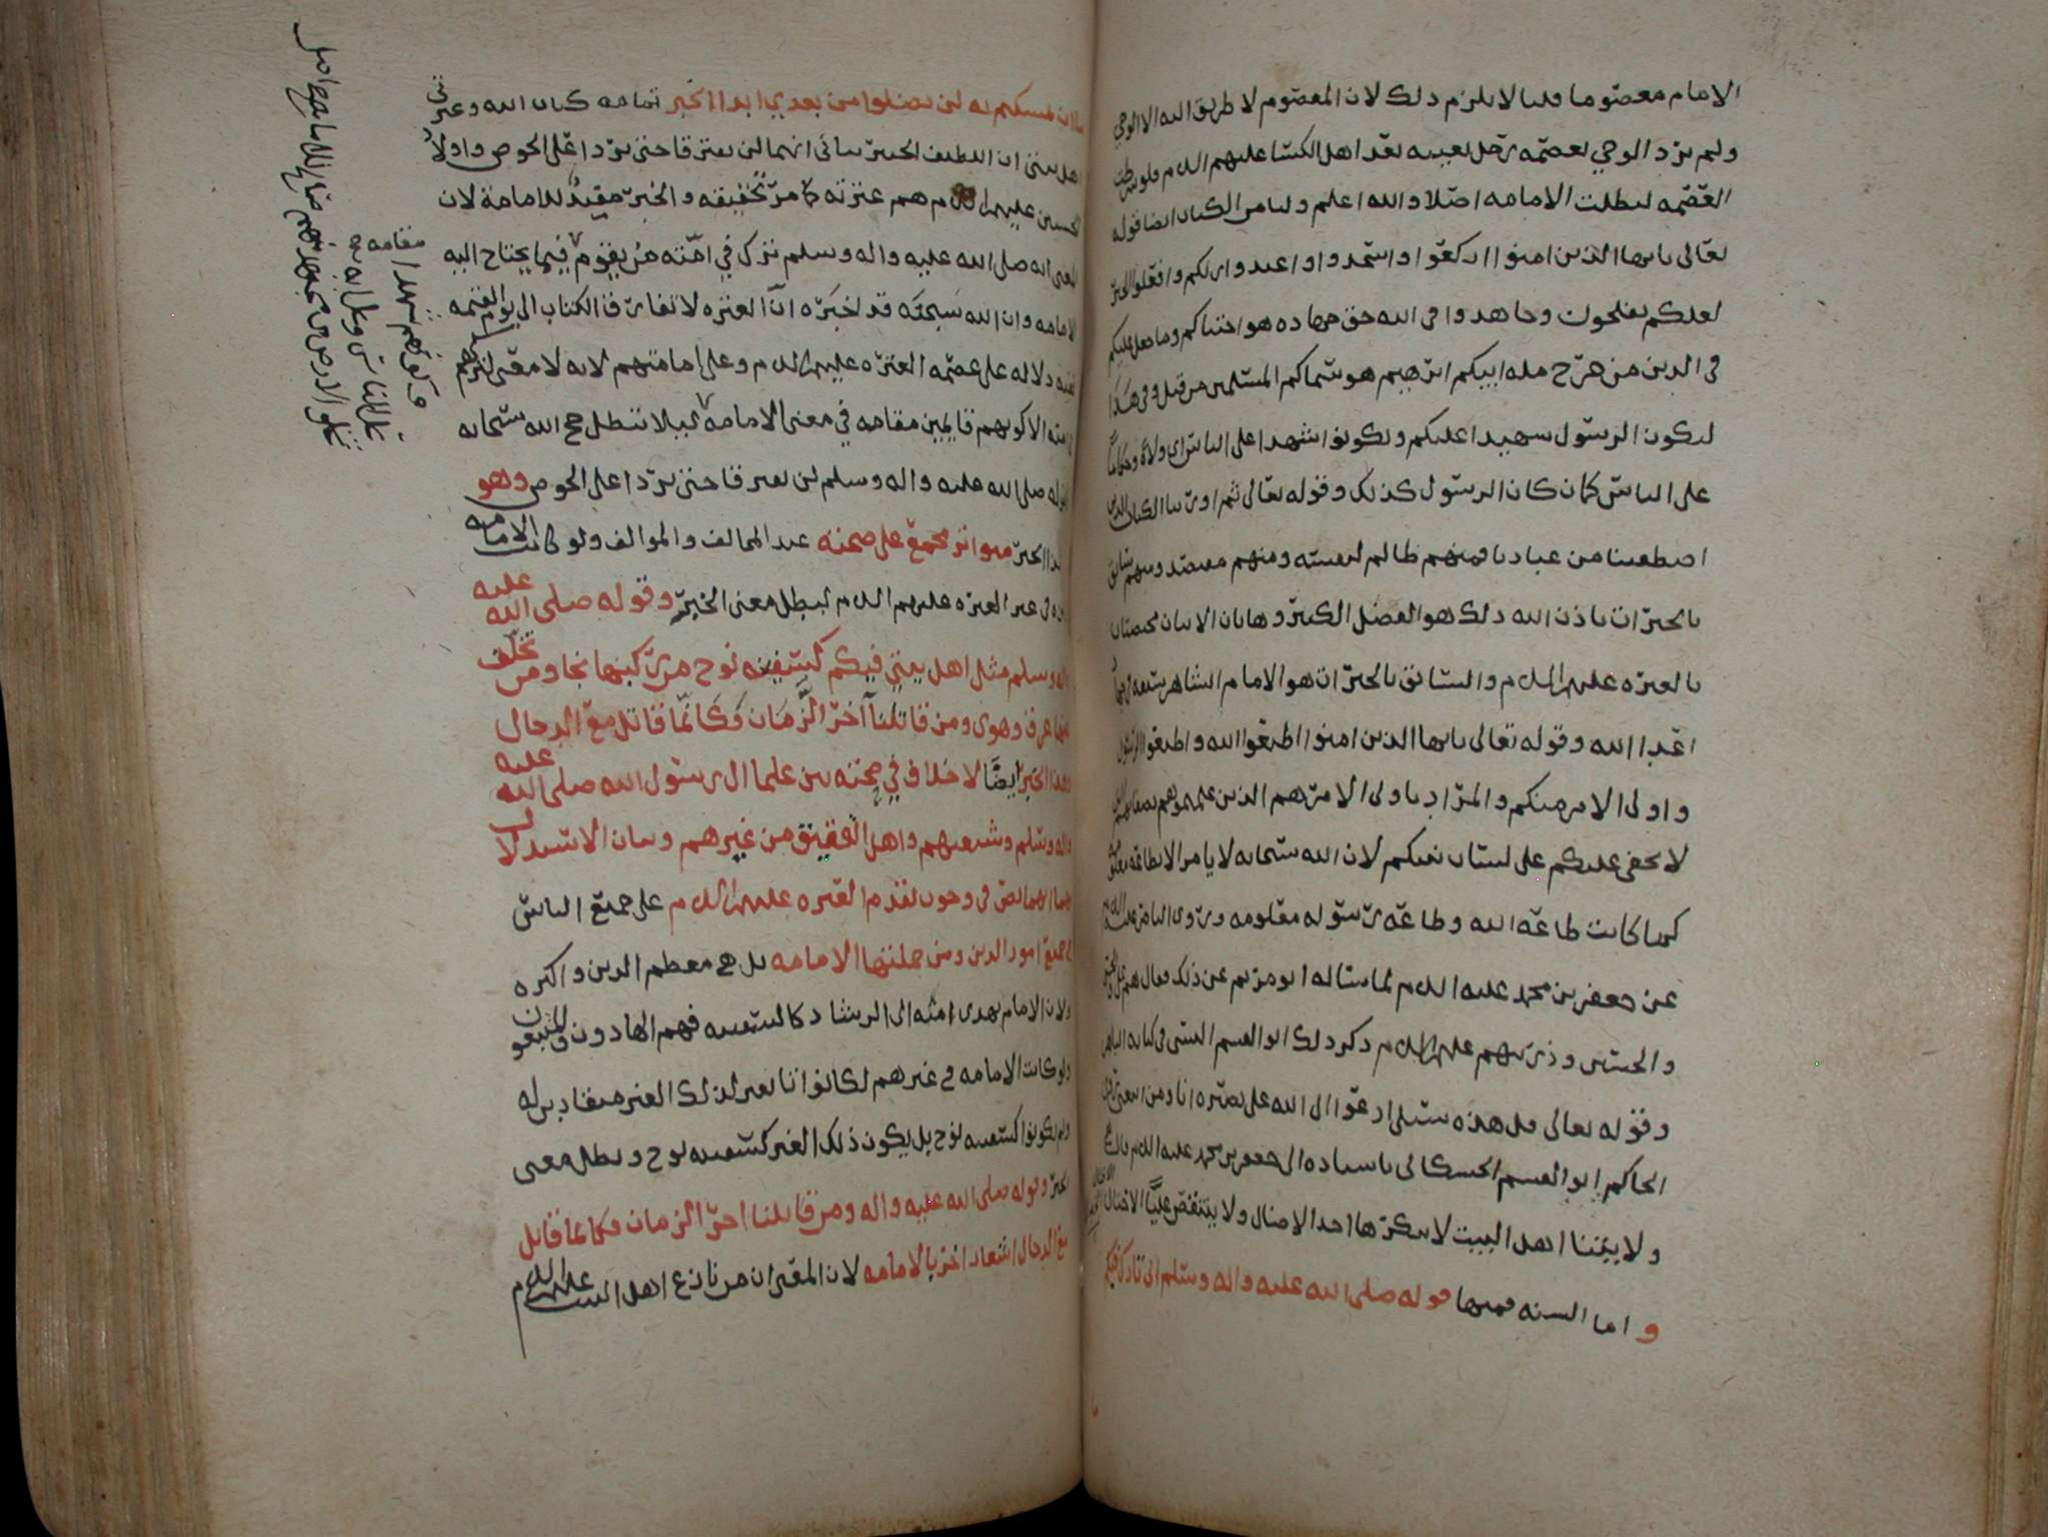 الامام معصوما قلنا لا يلزم ذلك لان المعصوم لا طريق اليه الا الوحي
ولم يرد الوحي بعصمة رجل بعينه بعد اهل الكسا عليهم السلام فلو شرطت
العصمه لبطلت الامامه اصلا والله اعلم ولنا من الكتاب ايضا قوله
تعالى يايها الذين امنوا اركعوا واسجدوا واعبدوا ربكم وافعلوا الخير
لعلكم تفلحون وجاهدوا في الله حق جهاده هو اجتباكم وما جعل عليكم
في الدين من حرج مله ابيكم ابرهيم هو سماكم المسلمين من قبل وفي هذا
ليكون الرسول شهيدا عليكم وتكونوا شهدا على الناس اي ولاة وحكاما
على الناس كما كان الرسول كذلك وقوله تعالى ثم اورثنا الكتاب الذين
اصطفينا من عبادنا فمنهم ظالم لنفسه ومنهم مقتصد ومنهم سابق
بالخيرات باذن الله ذلك هو الفضل الكبير وهاتان الايتان مختصتان
بالعتره عليهم السلام والسابق بالخيرات هو الامام الشاهر سيفه
اعدا الله وقوله تعالى يايها الذين امنوا اطيعوا الله واطيعوا الرسول
واولي الامر منكم والمراد باولي الامر هم الذين
لا يخفى عليكم على لسان نبيكم لان الله سبحانه لا يامر الا بطاعة
كما كانت طاعة الله وطاعة رسوله معلومه وروى الناصر عليه السلام
عن جعفر بن محمد عليه السلام لما ساله ابو مريم عن ذلك فقال هم علي والحسن
والحسين وذريتهم عليهم السلام ذكر ذلك ابو القسم البستي في كتابه الباهر
وقوله تعالى قل هذه سبيلي ادعوا الى الله على بصيره انا ومن اتبعني
الحاكم ابو القسم الحسكاني باسناده الى جعفر بن محمد عليه السلام قال
ولايتنا اهل البيت لا ينكرها احد الا ضال ولا ينتقص عليا الا ضال
و اما السنه فمنها قوله صلى الله عليه واله وسلم اني تارك فيكم
ما ان تمسكتم به لن تضلوا من بعدي ابدا الخبر تمامه كتاب الله وعترتي
اهل بيتي ان اللطيف الخبير نباني انهما لن يفترقا حتى يردا علي الحوض واولاد
الحسين عليهم السلام هم عترته كما مر تحقيقه والخبر مفيد للامامة لان
المعنى انه صلى الله عليه واله وسلم ترك في امته من يقوم فيما يحتاج اليه
الامامه وان الله سبحنه قد اخبره ان العتره لا تفارق الكتاب الى يوم القيمه
ففيه دلاله على عصمة العتره عليهم السلام وعلى امامتهم لانه لا معنى لتركهم
في امته الا كونهم قايمين مقامه في معنى الامامه لييلا تبطل حجج الله سبحانه
لقوله صلى الله عليه واله وسلم لن يفترقا حتى يردا علي الحوض وهو
هذا الخبر متواتر مجمع على صحته عند المخالف والموالف ولو كانت الامامه
في غير العتره عليهم السلام لبطل معنى الخبر وقوله صلى الله عليه
واله وسلم مثل اهل بيتي فيكم كسفينه نوح من ركبها نجا ومن تخلف
عنها غرق وهوى ومن قاتلنا آخر الزمان فكانما قاتل مع الدجال
وهذا الخبر ايضا لا خلاف في صحته بين علما ال رسول الله صلى الله عليه
واله وسلم وشيعتهم واهل التحقيق من غيرهم وبيان الاستدلال
بهما انهما نص في وجوب تقدم العتره عليهم السلام على جميع الناس
في جميع امور الدين ومن جملتها الامامه بل هي معظم الدين واكثره
ولان الامام يهدي امته الى الرشاد كالسفينه فهم الهادون والمتبعون
ولو كانت الامامه في غيرهم لكانوا تابعين لذلك الغير منقادين له
ولم يكونوا كسفينه نوح بل يكون ذلك الغير كسفينه نوح وبطل معنى
الخبر وقوله صلى الله عليه واله ومن قاتلنا اخر الزمان فكانما قاتل
مع الدجال اشعار اخر بالامامه لان المعنى ان من نازع اهل البيت عليهم السلام
مقامه